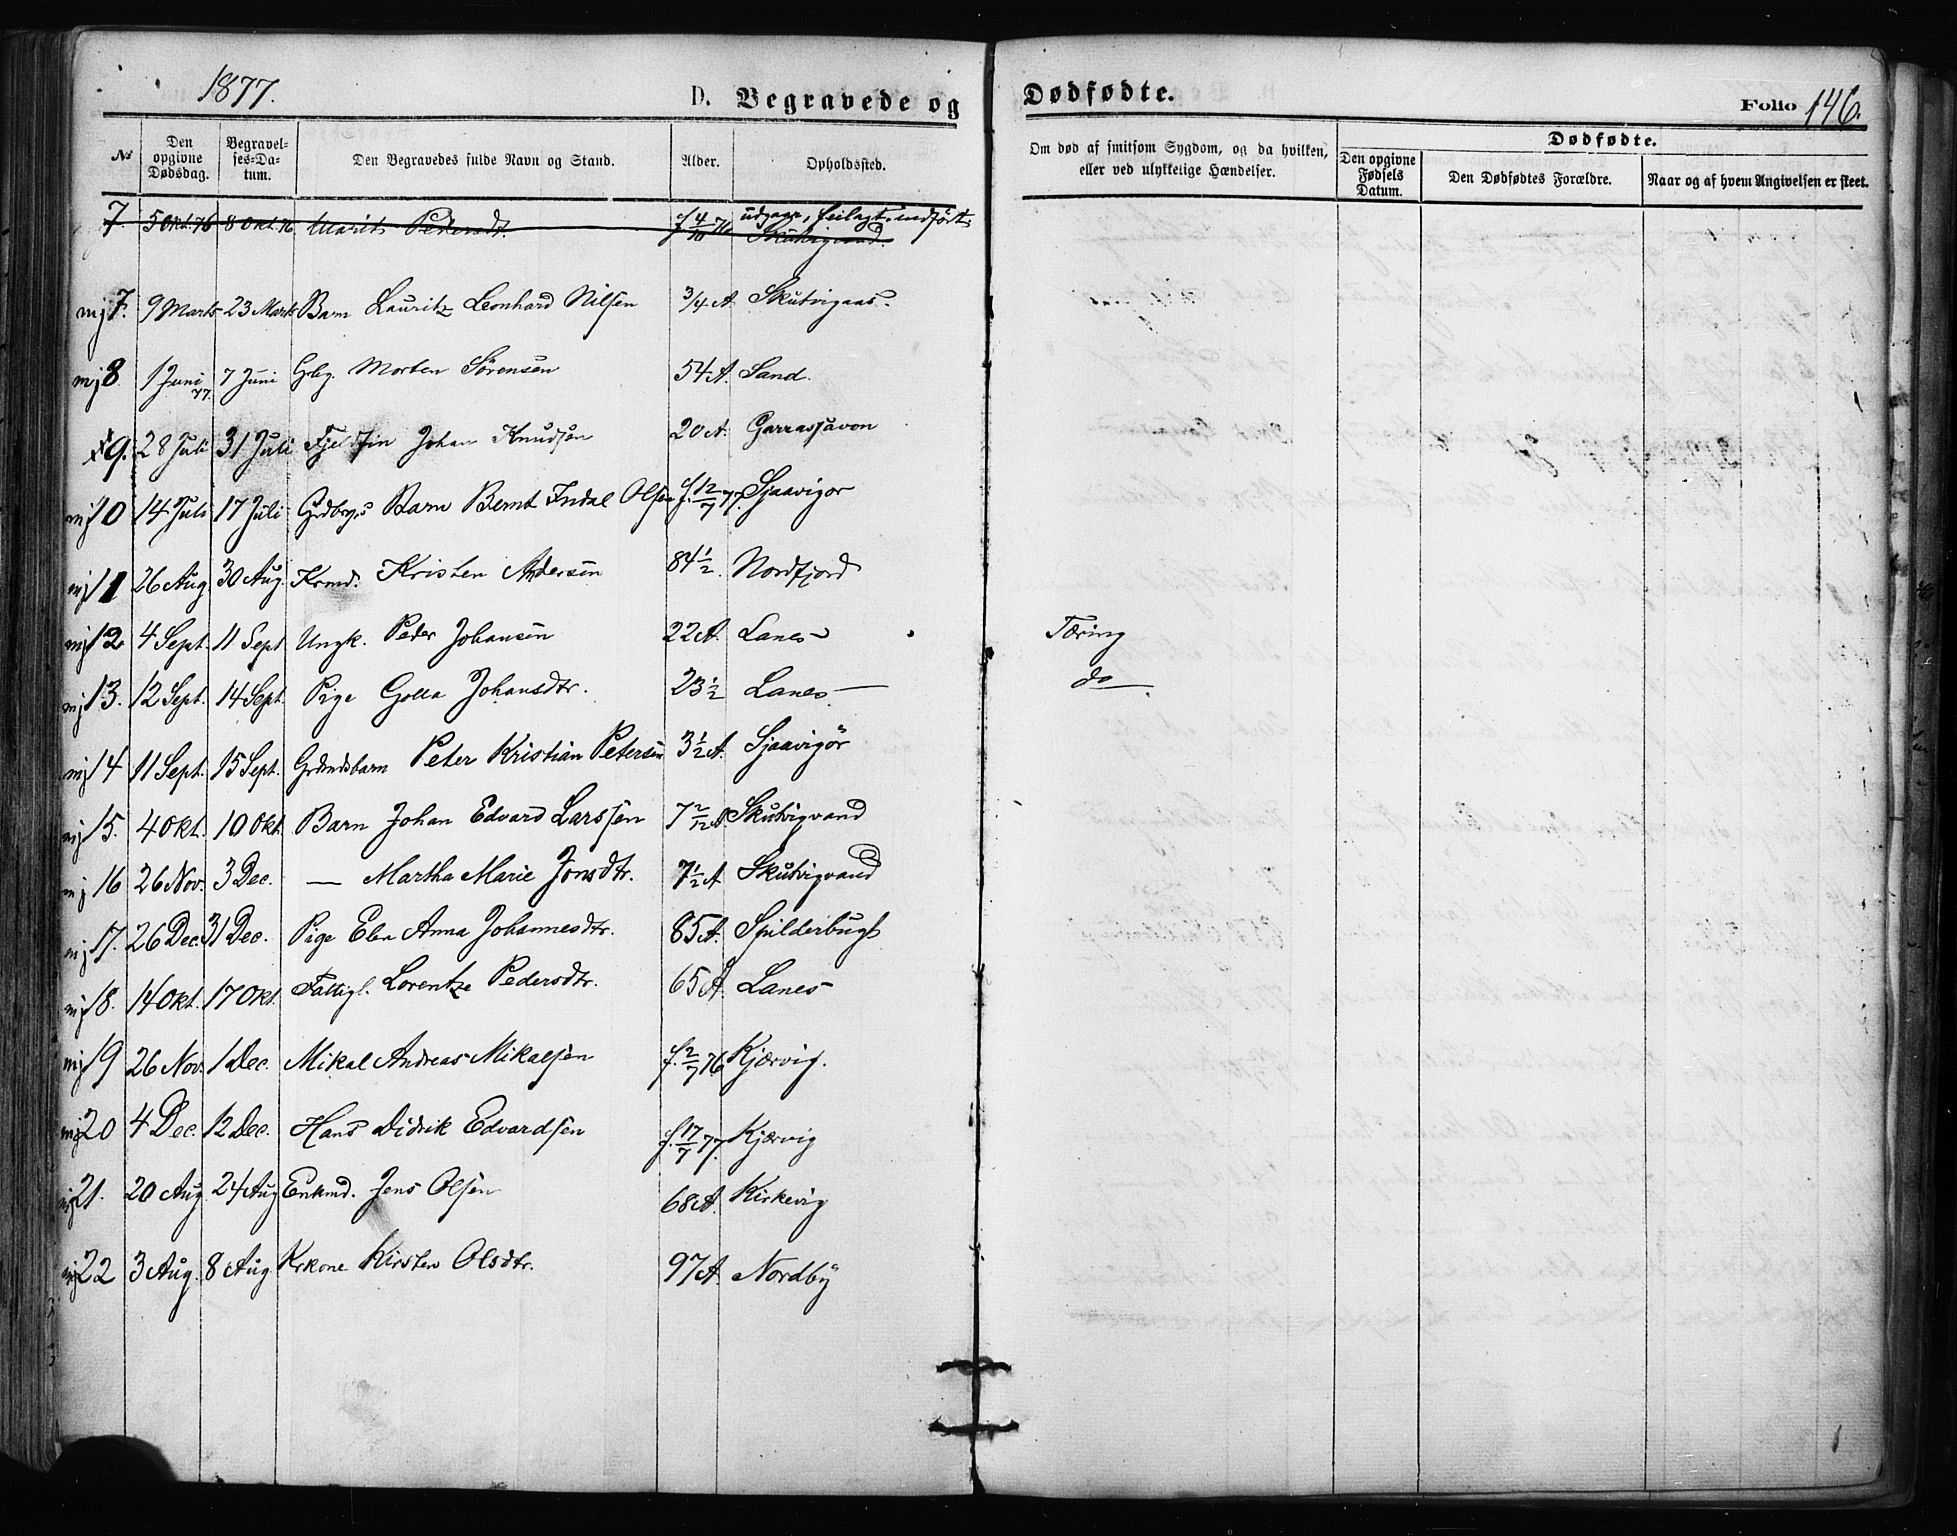 1877.
D. Begravede og Dødfødte.
Folio 146.
No
Den opgivne Dødsdag.
Begravelses-Datum.
Den Begravedes fulde Navn og Stand.
Alder.
Opholdssted.
Om død af smitsom Sygdom, og da hvilken, eller ved ulykkelige Hændelser.
Dødfødte.
Den opgivne Fødsels Datum.
Den Dødfødtes Forældre.
Naar og af hvem Angivelsen er skeet.
7. 5 Okt. 76 8 Okt. 76 Marit Pedersdt. f 4/10 76 udgaar, feilagt. indført. Skutvigvand.
mj 7. 9 Marts 23 Marts Barn Lauritz Leonhard Nilsen 3/4 A. Skutvigaas.
mj 8 1 Juni 77. 7 Juni Grbg. Morten Sörensen 54 A. Sand.
9. 28 Juli 31 Juli Fjeldfin Johan Knudsen 20 A. Garrasjavon
mj 10 14 Juli 17 Juli Grdbrgs Barn Bernt Indal Olsen f. 12/7 77. Sjaavigor
mj 11 26 Aug. 30 Aug. Krmd. Kristen Andersen 84 1/2 Nordfjord
mj 12 4 Sept. 11 Sept Ungk. Peder Johansen 22 A. Lanes Tæring
mj 13. 12 Sept. 14 Sept. Pige Golla Johansdtr. 23 1/2 Lanes do
mj 14 11 Sept. 15 Sept. Grdmdsbarn Peter Kristian Petersen 3 1/2 A. Sjaavigör
mj 15. 4 Okt. 10 Okt. Barn Johan Edvard Larssen 7 2/12 A Skutvigvand
mj 16 26 Nov. 3 Dec. — Martha Marie Jonsdtr. 7 1/2 A Skutvigvand
mj 17. 26 Dec. 31 Dec. Pige Elen Anna Johannesdtr. 85 A. Spilderbugt
mj 18. 14 Okt. 17 Okt. Fattigl. Lorentze Pedersdtr. 65 A. Lanes
mj 19 26 Nov. 1 Dec. Mikal Andreas Mikalsen f. 2/7 76 Kjærvig.
mj 20 4 Dec. 12 Dec. Hans Didrik Edvardsen f. 17/7 77. Kjærvig
mj 21. 20 Aug. 24 Aug Enkmd. Jens Olsen 68 A. Kirkevig
mj 22 3 Aug. 8 Aug Krkone Kirsten Olsdtr. 97 A. Nordby